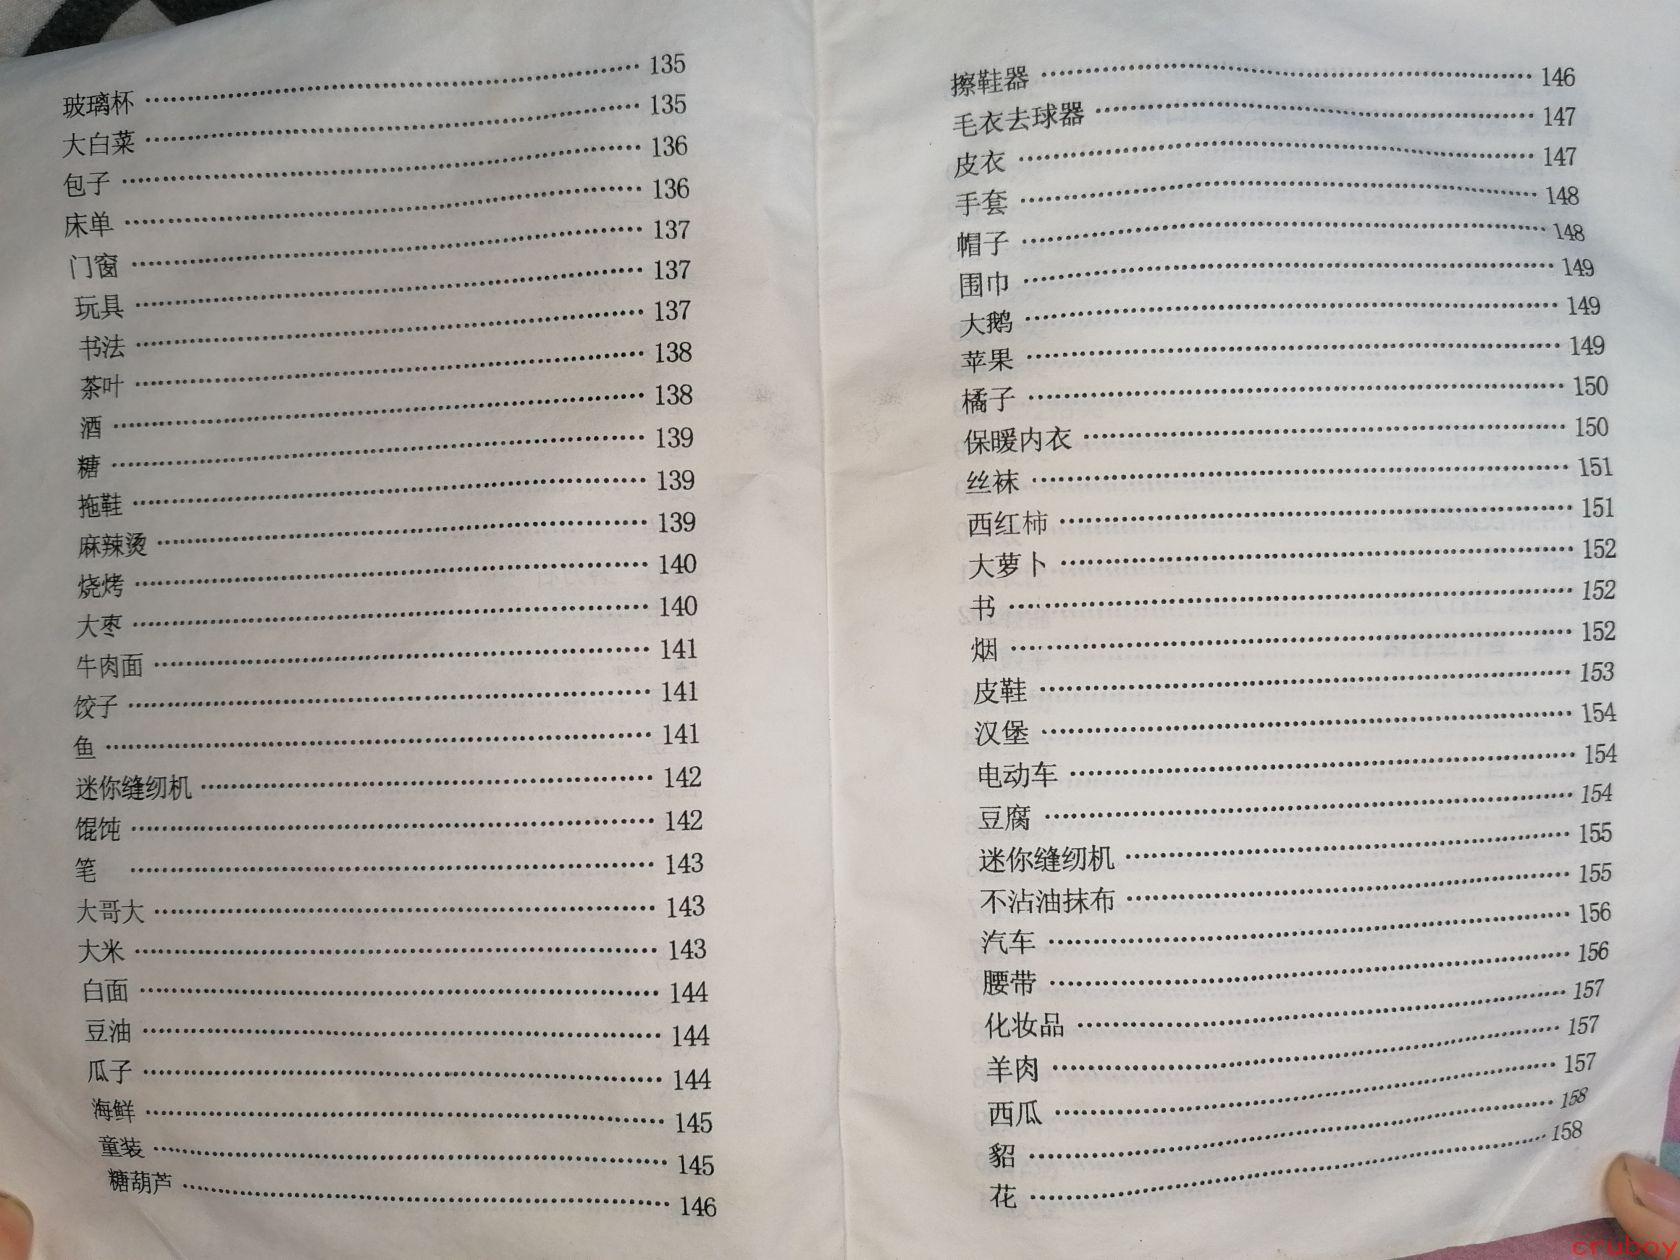 玻璃杯 …… 135
大白菜 …… 135
包子 …… 136
床单 …… 136
门窗 …… 137
玩具 …… 137
书法 …… 137
茶叶 …… 138
酒 …… 138
糖 …… 139
拖鞋 …… 139
麻辣烫 …… 139
烧烤 …… 140
大枣 …… 140
牛肉面 …… 141
饺子 …… 141
鱼 …… 141
迷你缝纫机 …… 142
馄饨 …… 142
笔 …… 143
大哥大 …… 143
大米 …… 143
白面 …… 144
豆油 …… 144
瓜子 …… 144
海鲜 …… 145
童装 …… 145
糖葫芦 …… 146
擦鞋器 …… 146
毛衣去球器 …… 147
皮衣 …… 147
手套 …… 148
帽子 …… 148
围巾 …… 149
大鹅 …… 149
苹果 …… 149
橘子 …… 150
保暖内衣 …… 150
丝袜 …… 151
西红柿 …… 151
大萝卜 …… 152
书 …… 152
烟 …… 152
皮鞋 …… 153
汉堡 …… 154
电动车 …… 154
豆腐 …… 154
迷你缝纫机 …… 155
不沾油抹布 …… 155
汽车 …… 156
腰带 …… 156
化妆品 …… 157
羊肉 …… 157
西瓜 …… 157
貂 …… 158
花 …… 158
cruboy